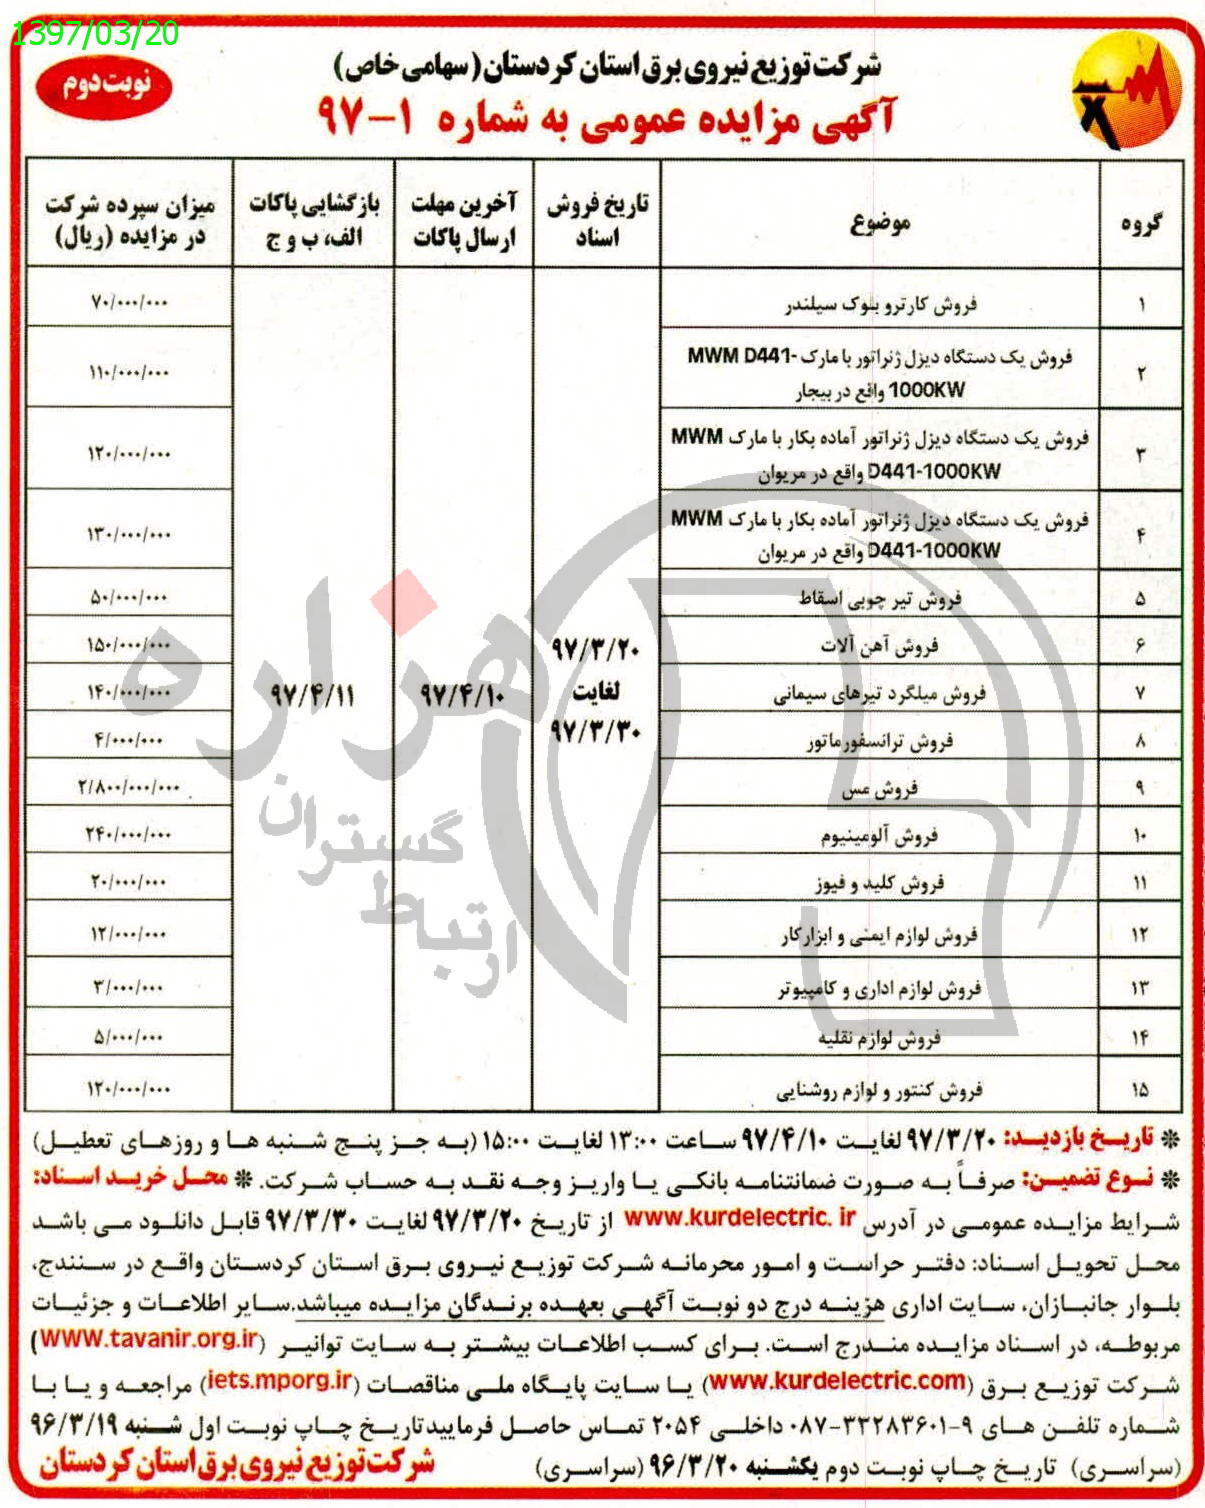 1397/03/20
نوبت دوم
شرکت توزیع نیروی برق استان کردستان (سهامی خاص)
آگهی مزایده عمومی به شماره ۱-۹۷
گروه
موضوع
تاریخ فروش اسناد
آخرین مهلت ارسال پاکات
بازگشایی پاکات الف، ب و ج
میزان سپرده شرکت در مزایده (ریال)
۱ فروش کارترو بلوک سیلندر ۷۰/۰۰۰/۰۰۰
۲ فروش یک دستگاه دیزل ژنراتور با مارک MWM D441-
1000KW واقع در بیجار ۱۱۰/۰۰۰/۰۰۰
۳ فروش یک دستگاه دیزل ژنراتور آماده بکار با مارک MWM
D441-1000KW واقع در مریوان ۱۲۰/۰۰۰/۰۰۰
۴ فروش یک دستگاه دیزل ژنراتور آماده بکار با مارک MWM
D441-1000KW واقع در مریوان ۱۳۰/۰۰۰/۰۰۰
۵ فروش تیر چوبی اسقاط ۵۰/۰۰۰/۰۰۰
۶ فروش آهن آلات ۱۵۰/۰۰۰/۰۰۰
۷ فروش میلگرد تیرهای سیمانی ۱۴۰/۰۰۰/۰۰۰
۸ فروش ترانسفورماتور ۴/۰۰۰/۰۰۰
۹ فروش مس ۲/۸۰۰/۰۰۰/۰۰۰
۱۰ فروش آلومینیوم ۲۴۰/۰۰۰/۰۰۰
۱۱ فروش کلید و فیوز ۲۰/۰۰۰/۰۰۰
۱۲ فروش لوازم ایمنی و ابزارکار ۱۲/۰۰۰/۰۰۰
۱۳ فروش لوازم اداری و کامپیوتر ۳/۰۰۰/۰۰۰
۱۴ فروش لوازم نقلیه ۵/۰۰۰/۰۰۰
۱۵ فروش کنتور و لوازم روشنایی ۱۲۰/۰۰۰/۰۰۰
۹۷/۳/۲۰
لغایت
۹۷/۳/۳۰
۹۷/۴/۱۰
۹۷/۴/۱۱
هزاره
گستران
ارتباط
* تاریخ بازدید: ۹۷/۳/۲۰ لغایت ۹۷/۴/۱۰ ساعت ۱۳:۰۰ لغایت ۱۵:۰۰ (به جز پنج شنبه ها و روزهای تعطیل)
* نوع تضمین: صرفاً به صورت ضمانتنامه بانکی یا واریز وجه نقد به حساب شرکت. * محل خرید اسناد:
شرایط مزایده عمومی در آدرس www.kurdelectric. ir از تاریخ ۹۷/۳/۲۰ لغایت ۹۷/۳/۳۰ قابل دانلود می باشد
محل تحویل اسناد: دفتر حراست و امور محرمانه شرکت توزیع نیروی برق استان کردستان واقع در سنندج،
بلوار جانبازان، سایت اداری هزینه درج دو نوبت آگهی بعهده برندگان مزایده میباشد.سایر اطلاعات و جزئیات
مربوطه، در اسناد مزایده مندرج است. برای کسب اطلاعات بیشتر به سایت توانیر (www.tavanir.org.ir)
شرکت توزیع برق (www.kurdelectric.com) یا سایت پایگاه ملی مناقصات (iets.mporg.ir) مراجعه و یا با
شماره تلفن های ۹-۳۳۲۸۳۶۰۱-۰۸۷ داخلی ۲۰۵۴ تماس حاصل فرمایید تاریخ چاپ نوبت اول شنبه ۹۶/۳/۱۹
(سراسری) تاریخ چاپ نوبت دوم یکشنبه ۹۶/۳/۲۰ (سراسری)
شرکت توزیع نیروی برق استان کردستان